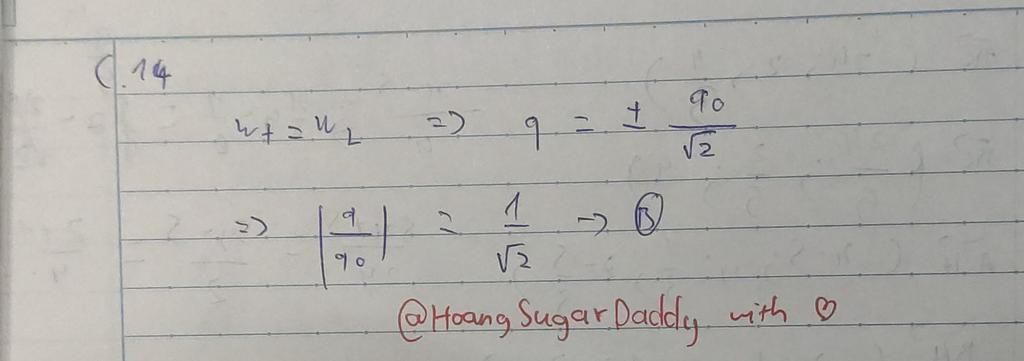 C.14
W_t = W_L => q = ± q_0/√2
=> |q/q_0| = 1/√2 → Ⓑ
@HoangSugarDaddy with ♡